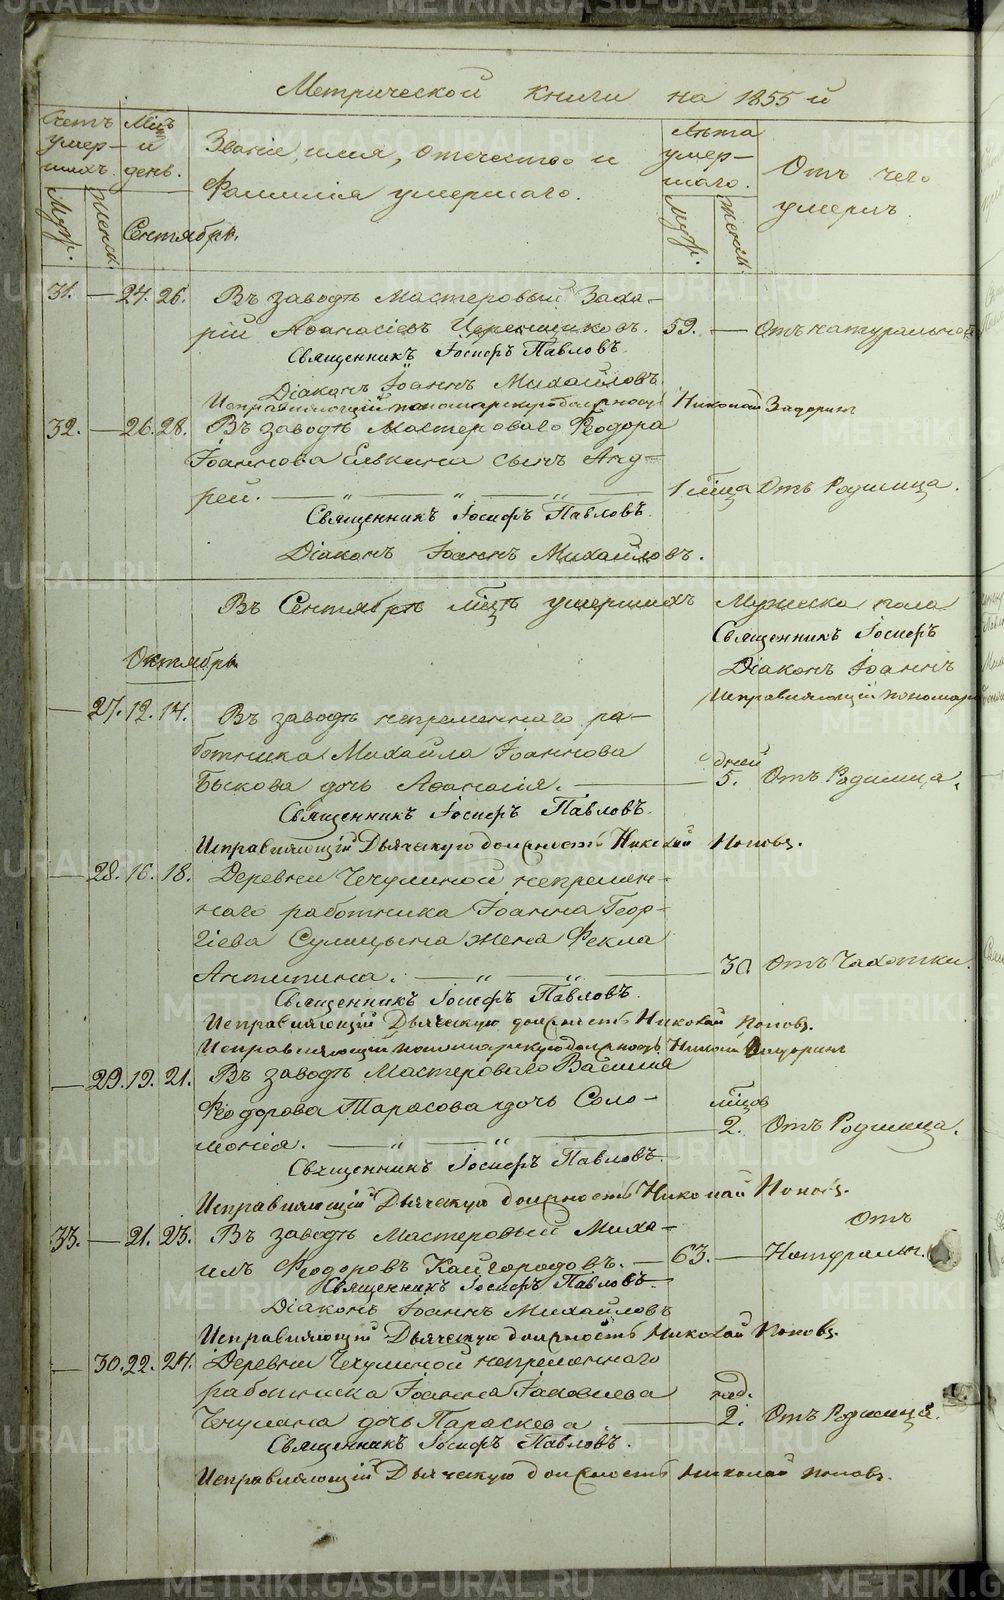 Метрической книги на 1855й
Счетъ умер-шихъ. Мцъ и день. Званіе, имя, отечество и Фамилія умершаго. Лѣта умер-шаго. Отъ чего умеръ.
Муж. Женск. Сентябрь. Муж. Женск.
31. — 24. 26. Въ заводѣ Мастеровый Заха-
рій Аѳанасіевъ 59. — Отъ натуральной
Священникъ Іосифъ Павловъ.
Діаконъ Іоаннъ Михайловъ.
Исправляющій пономарскую должность Николай
32. — 26. 28. Въ заводѣ Мастероваго Ѳеодора
Іоаннова Елькина сынъ Анд-
рей. — " — " — " — 1 мѣсца Отъ Родимца.
Священникъ Іосифъ Павловъ.
Діаконъ Іоаннъ Михайловъ.
Въ Сентябрѣ мцѣ умершихъ Мужеска пола
Священникъ Іосифъ
Діаконъ Іоаннъ
Октябрь
Исправляющій пономар
— 27. 12. 14. Въ заводѣ непременнаго ра-
ботника Михайла Іоаннова дней
Быкова дочь Аѳанасія. — 5. Отъ Родимца.
Священникъ Іосифъ Павловъ.
Исправляющій Дьяческую должность Николай Поповъ.
— 28. 16. 18. Деревни Чечулиной непремен-
наго работника Іоанна Геор-
гіева Сулицына жена Ѳекла
Антипина. — " — " — 30 Отъ Чахотки.
Священникъ Іосифъ Павловъ.
Исправляющій Дьяческую должность Николай Поповъ.
Исправляющій пономарскую должность Николай
— 29. 19. 21. Въ заводѣ Мастероваго Василія
Ѳеодорова Тарасова дочь Соло- мцовъ
монія. — " — " — 2. Отъ Родимца.
Священникъ Іосифъ Павловъ.
Исправляющій Дьяческую должность Николай Поповъ.
33. — 21. 23. Въ заводѣ Мастеровый Миха- Отъ
илъ Ѳеодоровъ Кайгородовъ. — 63. — Натуральн.
Священникъ Іосифъ Павловъ
Діаконъ Іоаннъ Михайловъ
Исправляющій Дьяческую должность Николай Поповъ.
— 30. 22. 24. Деревни Чечулиной непременнаго
работника Іоанна Іаковлева нед.
Чечулина дочь Параскева. — 2. Отъ Родимца.
Священникъ Іосифъ Павловъ.
Исправляющій Дьяческую должность Николай Поповъ.
METRIKI.GASO-URAL.RU